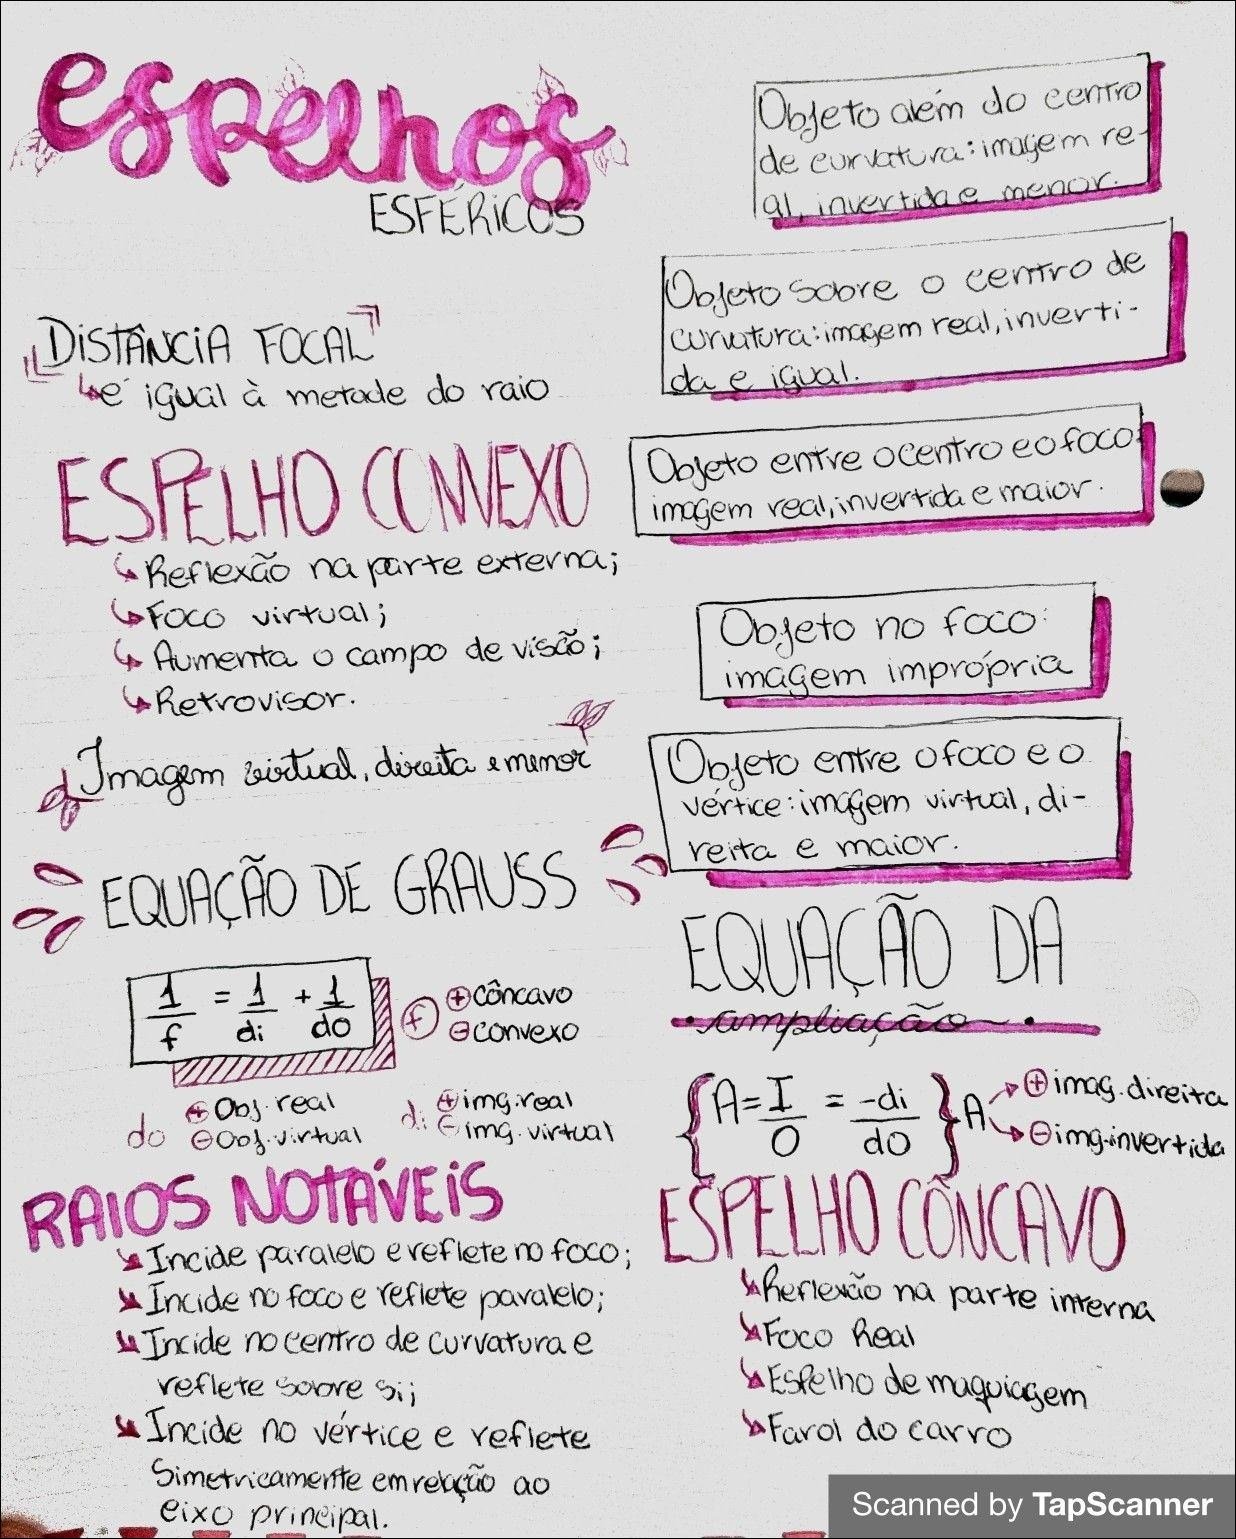 espelhos
ESFÉRICOS
DISTÂNCIA FOCAL
é igual à metade do raio
ESPELHO CONVEXO
Reflexão na parte externa;
Foco virtual;
Aumenta o campo de visão;
Retrovisor.
Imagem virtual, direita e menor
EQUAÇÃO DE GRAUSS
1/f = 1/di + 1/do
f ⊕ côncavo
⊖ convexo
do ⊕ Obj. real
⊖ Obj. virtual
di ⊕ img. real
⊖ img. virtual
RAIOS NOTÁVEIS
Incide paralelo e reflete no foco;
Incide no foco e reflete paralelo;
Incide no centro de curvatura e
reflete sobre si;
Incide no vértice e reflete
Simetricamente em relação ao
eixo principal.
Objeto além do centro
de curvatura: imagem re-
al, invertida e menor.
Objeto sobre o centro de
curvatura: imagem real, inverti-
da e igual.
Objeto entre o centro e o foco:
imagem real, invertida e maior.
Objeto no foco:
imagem imprópria
Objeto entre o foco e o
vértice: imagem virtual, di-
reita e maior.
EQUAÇÃO DA
ampliação
{A = I/O = -di/do}
A ⊕ imag. direita
⊖ img. invertida
ESPELHO CÔNCAVO
Reflexão na parte interna
Foco Real
Espelho de maquiagem
Farol do carro
Scanned by TapScanner